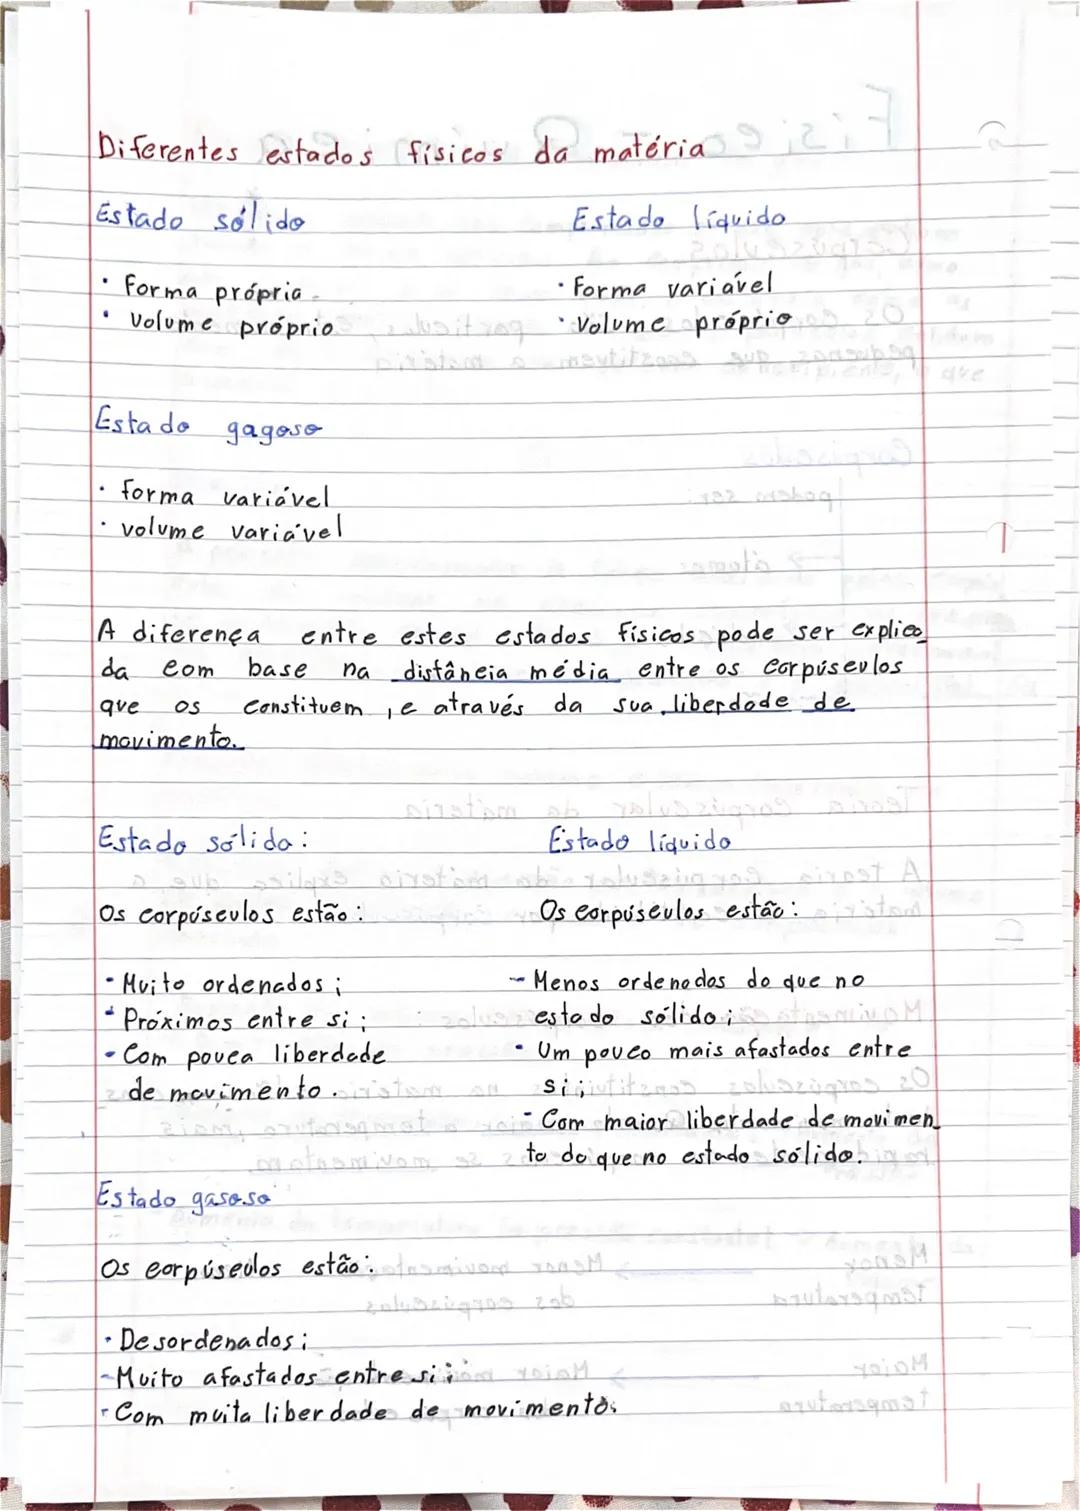 Diferentes estados físicos da matéria
Estado sólido
• Forma própria
• Volume próprio
Estado líquido
• Forma variável
• Volume próprio
Estado gagoso
• forma variável
• volume variável
A diferença entre estes estados físicos pode ser explica
da com base na distância média entre os corpúsculos
que os constituem, e através da sua liberdade de
movimento.
Estado sólido:
Os corpúsculos estão:
- Muito ordenados;
- Próximos entre si;
- Com pouca liberdade
de movimento.
Estado líquido
Os corpúsculos estão:
- Menos ordenados do que no
estado sólido;
- Um pouco mais afastados entre
si;
- Com maior liberdade de movimen
to do que no estado sólido.
Estado gasoso
Os corpúsculos estão:
- Desordenados;
- Muito afastados entre si;
- Com muita liberdade de movimento.